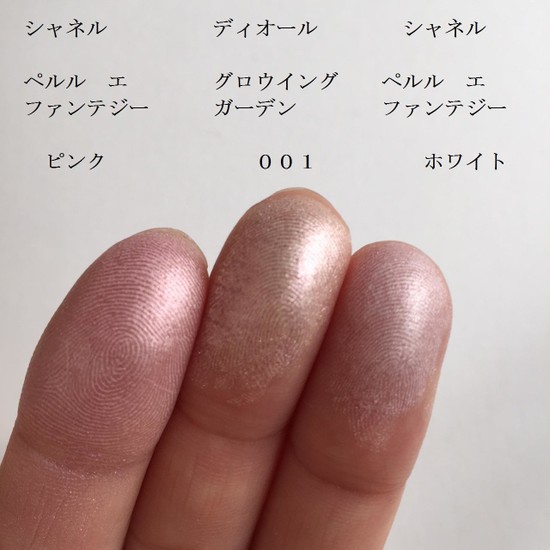 シャネル
ペルル　エ
ファンテジー
ピンク
ディオール
グロウイング
ガーデン
００１
シャネル
ペルル　エ
ファンテジー
ホワイト